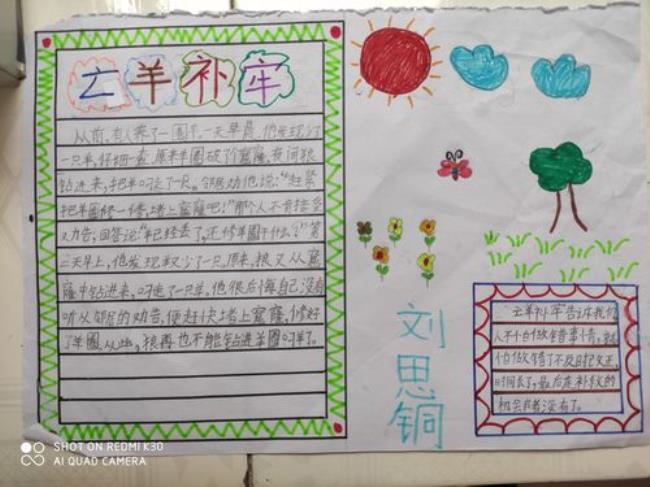 亡羊补牢
从前,有人养了一圈羊,一天早晨,他发现少了
一只羊,仔细一查,原来羊圈破了个窟窿,夜间狼
钻进来,把羊叼走了一只。邻居劝他说:“赶紧
把羊圈修一修,堵上窟窿吧!”那个人不肯接受
劝告,回答说:“羊已经丢了,还修羊圈干什么?”第
二天早上,他发现羊又少了一只。原来,狼又从窟
窿中钻进来,叼走了一只羊。他很后悔自己没有
听从邻居的劝告,便赶快堵上窟窿,修好
了羊圈。从此,狼再也不能钻进羊圈叼羊了。
刘思铜
亡羊补牢告诉我们
人不怕做错事情,就
怕做错了不及时改正,
时间长了,最后连补救的
机会都没有了。
SHOT ON REDMI K30
AI QUAD CAMERA